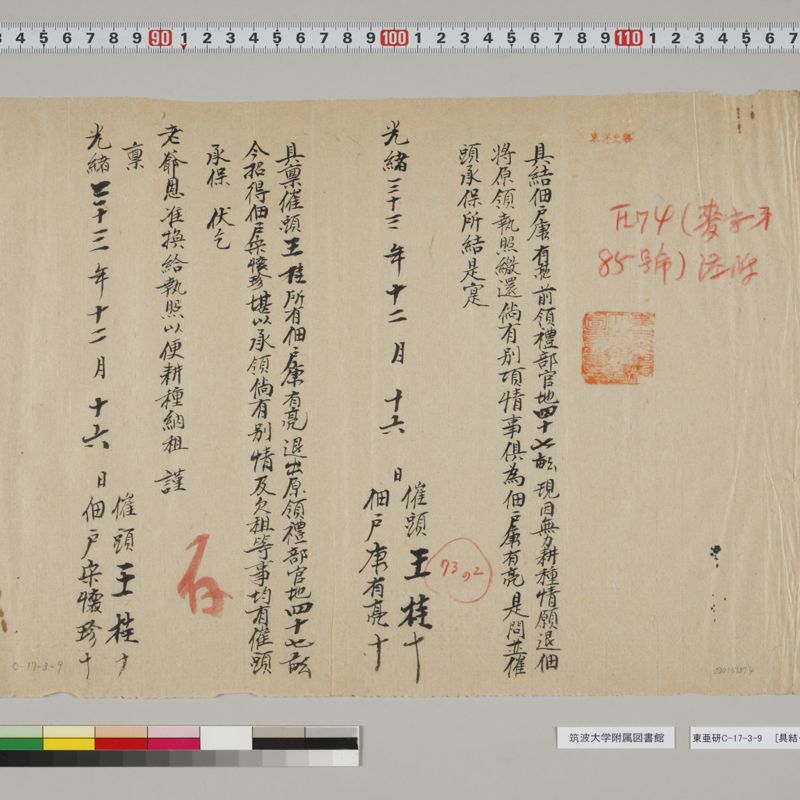 具結佃戶康有亮前領禮部官地四十七畝現因無力耕種情願退佃
將原領執照繳還倘有別項情事俱為佃戶康有亮是問並催
頭承保所結是寔
光緒三十三年十二月十六日催頭王桂十
佃戶康有亮十
具稟催頭王桂所有佃戶康有亮退出原領禮部官地四十七畝
今招得佃戶栾懷珍堪以承領倘有別情及欠租等事均有催頭
承保 伏乞
老爺恩准換給執照以便耕種納租 謹
稟
光緒三十三年十二月十六日催頭王桂十
佃戶栾懷珍十
存
73の2
85号
C-17-3-9
90 1 2 3 4 5 6 7 8 9 100 1 2 3 4 5 6 7 8 9 110 1 2 3 4 5 6 7
筑波大学附属図書館
東亜研C-17-3-9 [具結